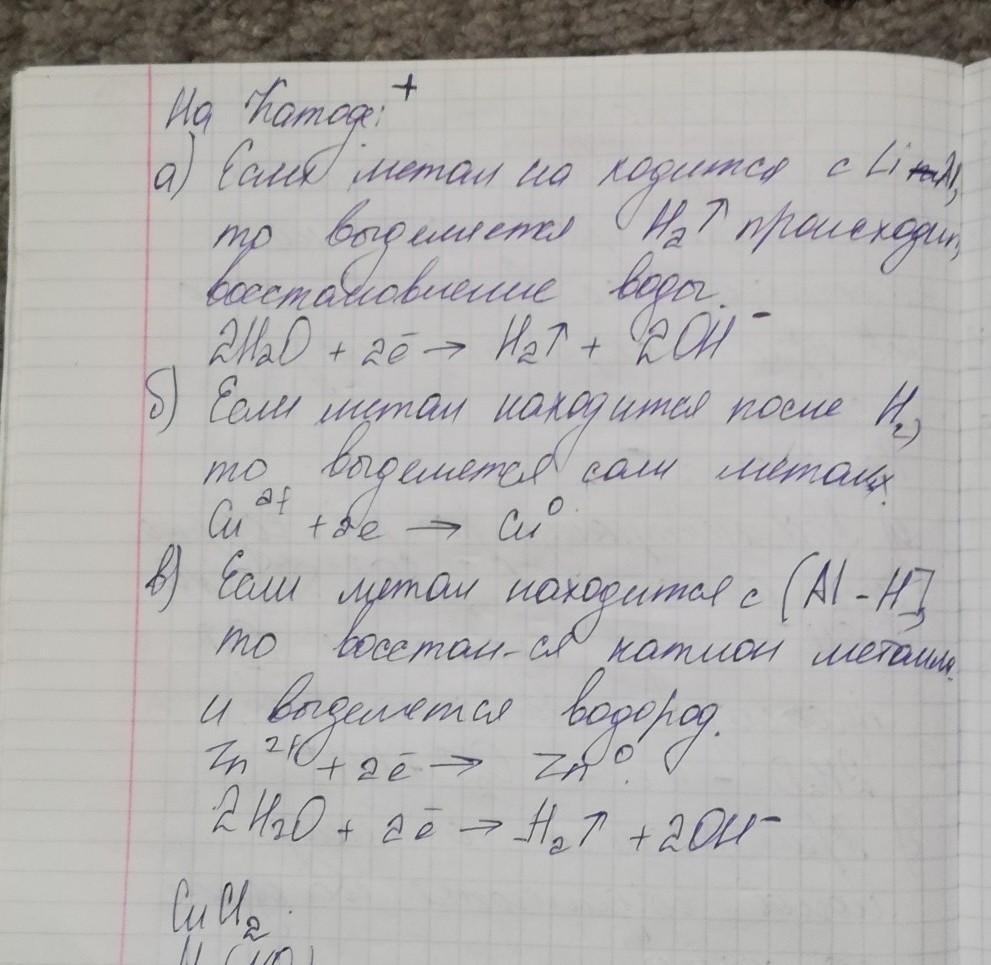 На Катоде: +
а) Если метал на ходится с Li - Al,
то выделяется H₂↑ происходит,
восстановление воды.
2H₂O + 2ē → H₂↑ + 2OH⁻
б) Если метал находится после H₂,
то выделяется сам метал.
Cu²⁺ + 2e → Cu⁰
в) Если метал находится с (Al - H],
то восстан-ся катион металла
и выделяется водород.
Zn²⁺ + 2ē → Zn⁰.
2H₂O + 2ē → H₂↑ + 2OH⁻
CuCl₂.